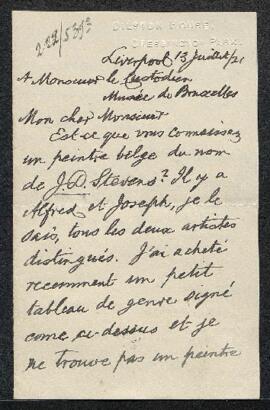 222/5392
Liverpool 13 Juillet/21
A Monsieur le Custodien
Musée de Bruxelles
Mon cher Monsieur
Est-ce que vous connaissez
un peintre belge du nom
de J.D. Stevens? Il y a
Alfred et Joseph, je le
sais, tous les deux artistes
distingués. J'ai acheté
recemment un petit
tableau de genre signé
come ci-dessus et je
ne trouve pas un peintre